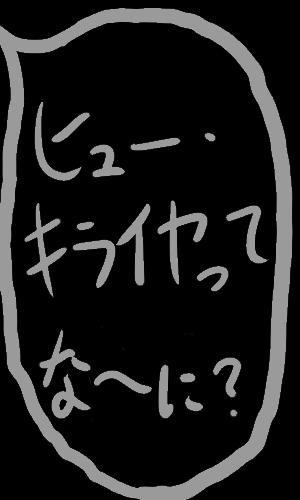 ヒュー・
キライヤって
な〜に?